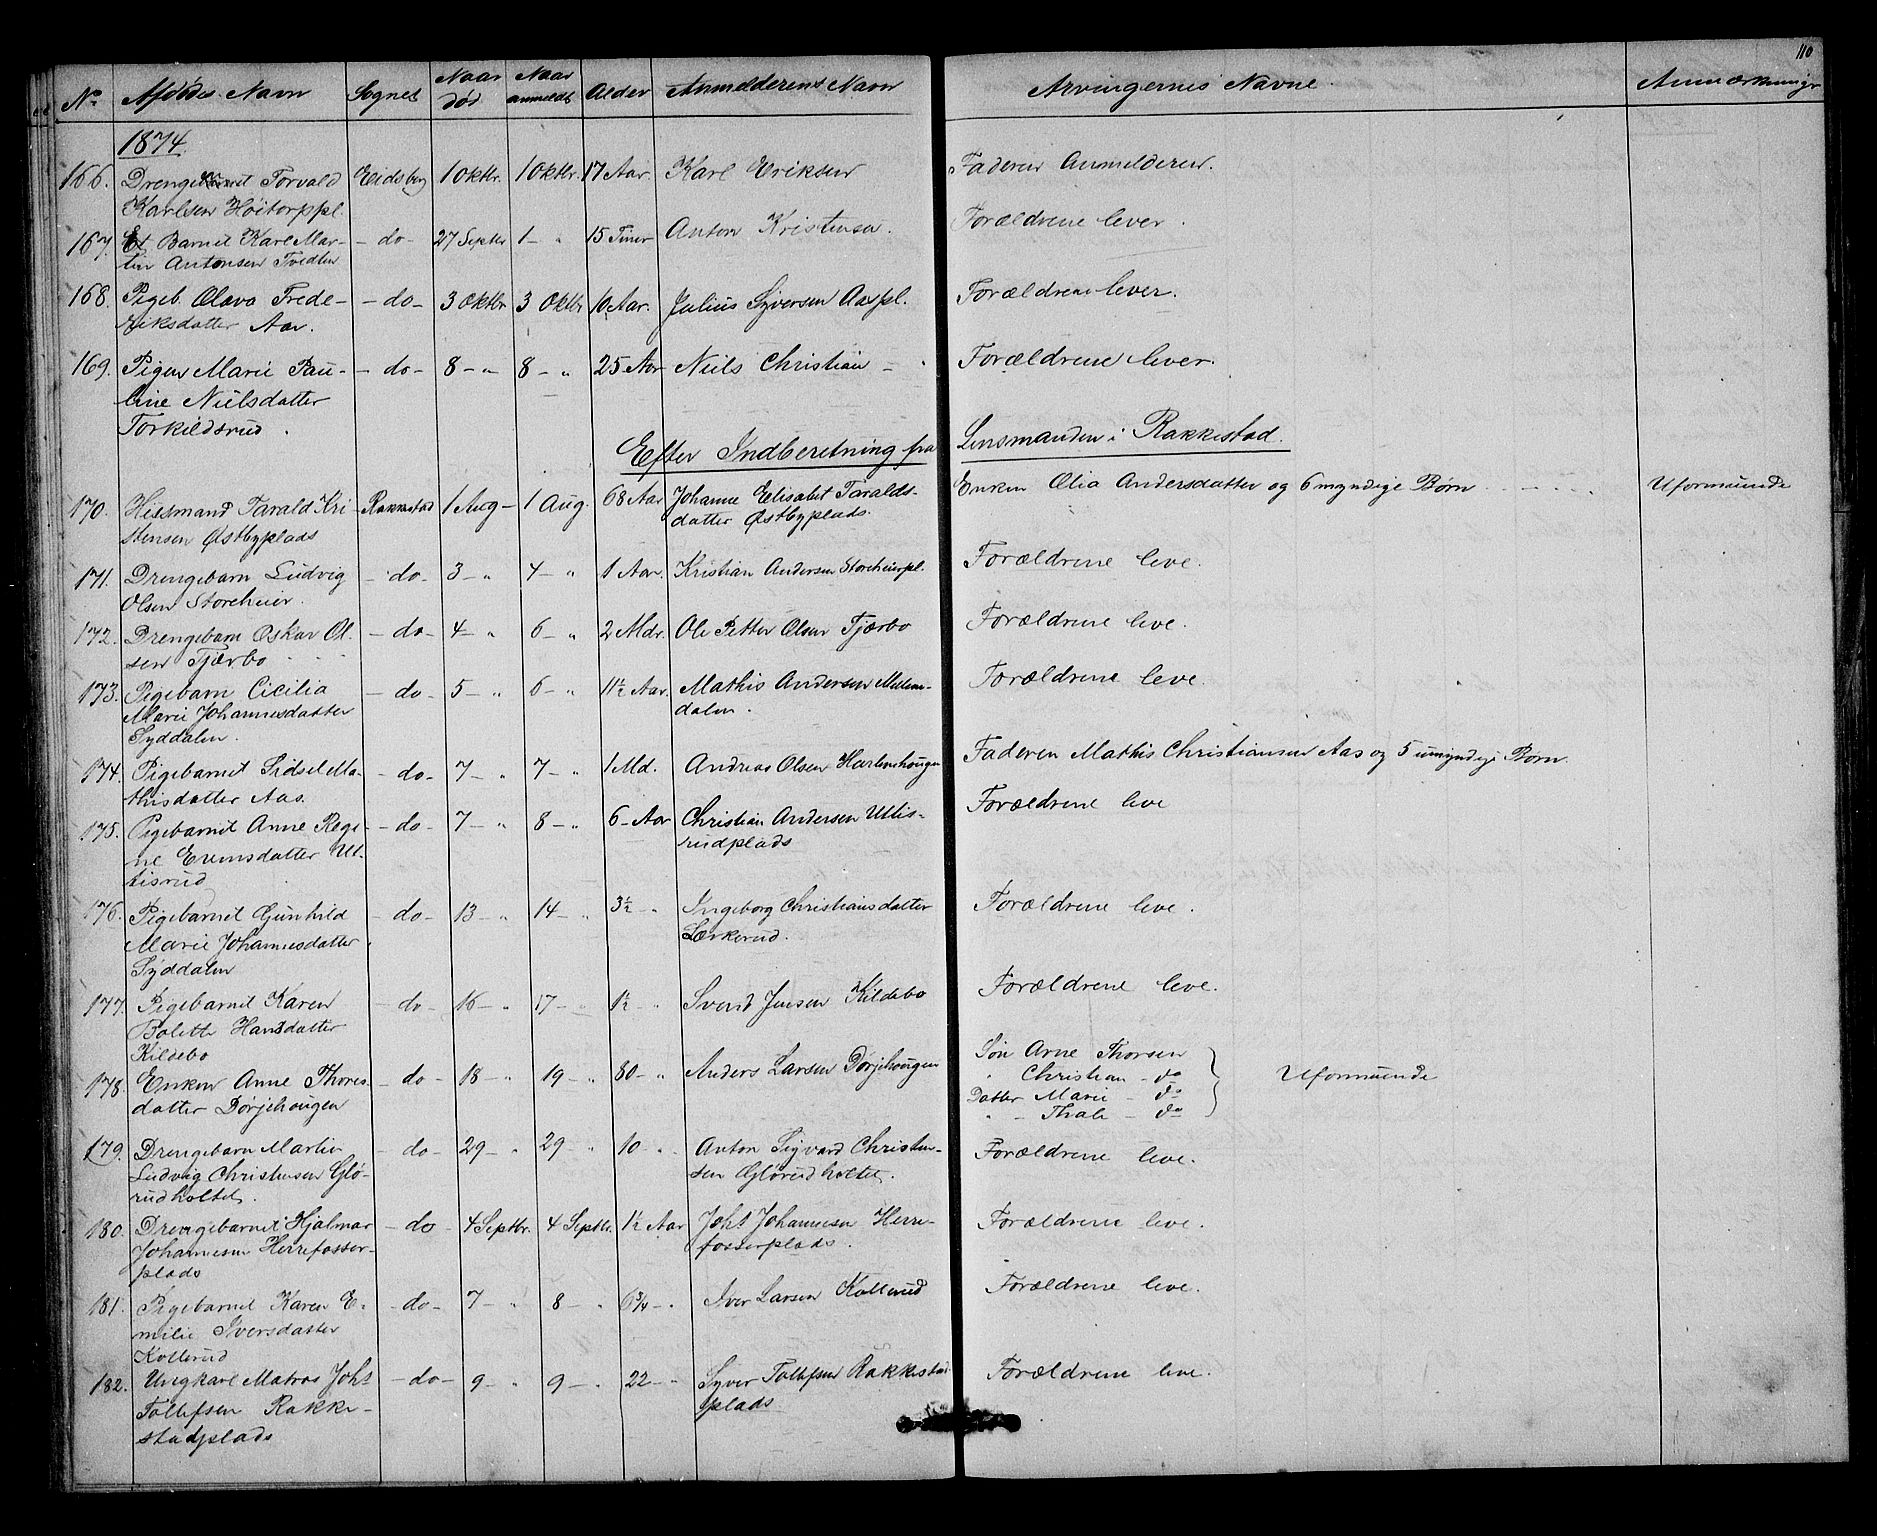 110
No Afdødes Navn Sognet Naar død Naar anmeldt Alder Anmelderens Navn Arvingernes Navne Anmærkninger
1874.
166. Drengebarnet Torvald Eidsberg 1 Oktbr. 1 Oktbr. 17 Aar. Karl Eriksen Faderen Anmelderen.
Karlsen Höitorppl.
167. Et Barnet Karl Mar- - do - 27 Septbr 1 - " 15 Timer Anton Kristensen. Forældrene lever.
tin Antonsen Tvedten
168. Pigeb. Olava Frede- - do - 3 Oktbr 3 Oktbr 10 Aar. Julius Syversen Aaspl. Forældrene lever.
riksdatter Aas.
169. Pigen Marie Pau- - do - 8 - " 8 - " 25 Aar Niels Christian - " Forældrene lever.
line Nielsdatter
Torkildsrud.
Efter Indberetning fra Lensmanden i Rakkestad.
170. Huusmand Tarald Kri- Rakkestad 1 Aug - 1 Aug. 68 Aar Johanne Elisabet Taralds- Enken Olia Andersdatter og 6 myndige Børn Uformuende
stensen Østbyplads datter Østbyplads.
171. Drengebarn Ludvig - do - 3 - " 4 - " 1 Aar. Kristian Andersen Storeheierpl. Forældrene leve.
Olsen Storeheier.
172. Drengebarn Oskar Ol- - do - 4 - " 6 - " 2 Mdr. Ole Petter Olsen Tjærbo Forældrene leve.
sen Tjærbo
173. Pigebarn Cicilia - do - 5 - " 6 - " 1½ Aar. Mathis Andersen Mellem- Forældrene leve.
Marie Johannesdatter dalen.
Syddalen.
174. Pigebarnet Sidsel Ma- - do - 7 - " 7 - " 1 Md. Andreas Olsen Harlemhougen Faderen Mathis Christiansen Aas og 5 umyndige Børn.
thisdatter Aas.
175. Pigebarnet Anne Regi- - do - 7 - " 8 - " 6 - Aar Christian Andersen Uttis- Forældrene leve
ne Evensdatter Ut- rudplads
tisrud
176. Pigebarnet Gunhild - do - 13 - " 14 - " 3½ - " Ingeborg Christiansdatter Forældrene leve.
Marie Johannesdatter Lærkerud.
Syddalen
177. Pigebarnet Karen - do - 16 - " 17 - " 1½ - " Svend Jensen Kildebo Forældrene leve.
Bolette Hansdatter
Kildebo
178. Enken Anne Thores- - do - 18 - " 19 - " 80 - " Anders Larsen Dørjehougen Søn Arne Thorsen
datter Dørjehougen " Christian - do Uformuende
Datter Marie - do
" - Thale - do
179. Drengebarn Martin - do - 29 - " 29 " 10 - " Anton Sigvard Christen- Forældrene leve.
Ludvig Christensen Glø- sen Glørudholtet.
rudholtet.
180. Drengebarnet Hjalmar - do - 4 Septbr. 4 Septbr. 1½ Aar Johs Johannesen Herre- Forældrene leve.
Johannesen Herrefosser- fosserplads.
plads
181. Pigebarnet Karen E- - do - 7 - " 8 - " 6¾ - " Iver Larsen Kolterud Forældrene leve.
milie Iversdatter
Kolterud
182. Ungkarl Matros Johs - do - 9 - " 9 - " 22 - " Syver Tollefsen Rakkestad- Forældrene leve.
Tollefsen Rakke- plads
stadplads